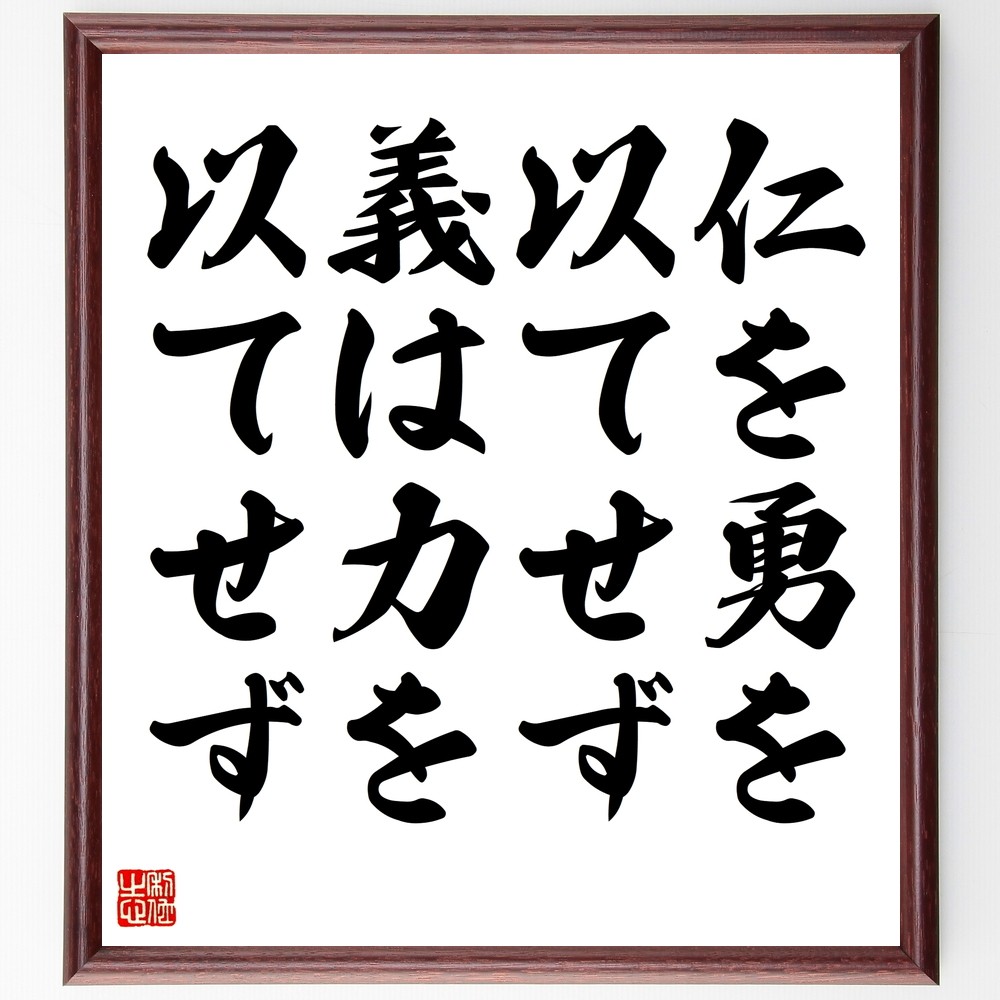 仁を勇を
以てせず
義は力を
以てせず